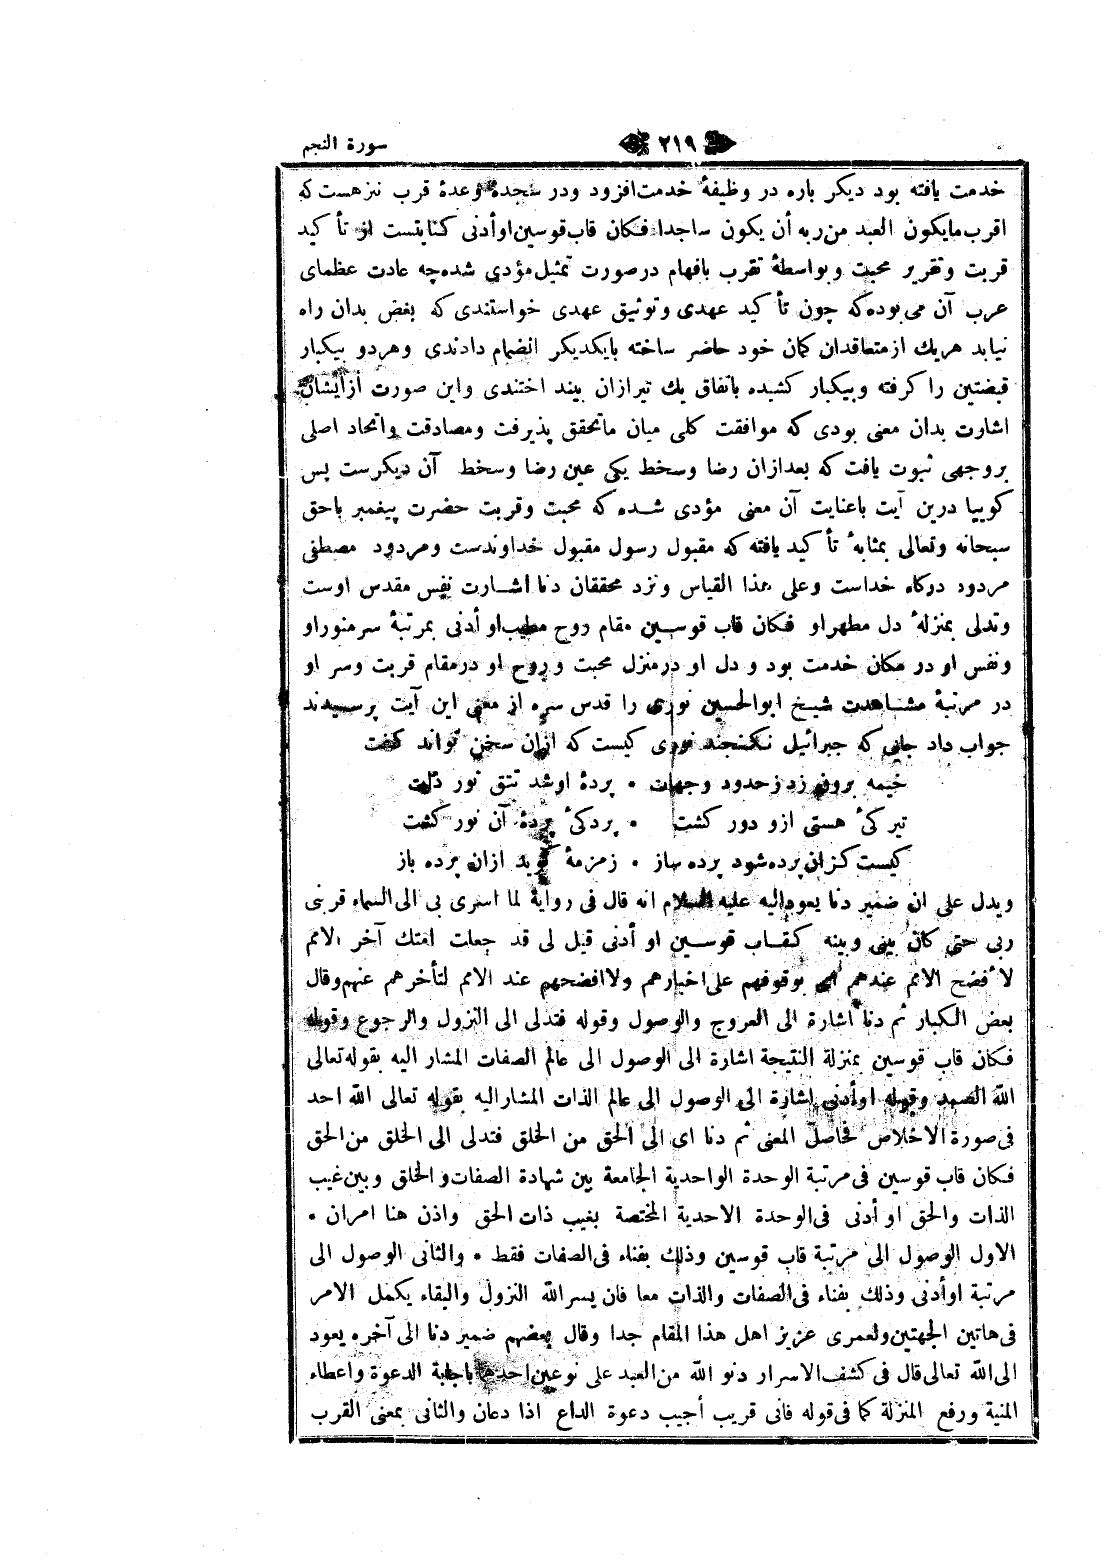 سورة النجم
٢١٩
خدمت يافته بود ديكر باره در وظيفۀ خدمت افزود ودر سجدۀ وعدۀ قرب نيز هست كه
اقرب مايكون العبد من ربه أن يكون ساجدا فكان قاب قوسين اوأدنى كنايتست از تأكيد
قربت وتقرير محبت وبواسطۀ تقرب بافهام درصورت تمثيل مؤدى شده چه عادت عظماى
عرب آن مى بوده كه چون تأكيد عهدى وتوثيق عهدى خواستندى كه بغض بدان راه
نيابد هريك ازمتعاقدان كمان خود حاضر ساخته بايكديكر انضمام دادندى وهردو بيكبار
قبضتين را كرفته وبيكبار كشيده باتفاق يك تيرازان بينداختندى واين صورت ازايشان
اشارت بدان معنى بودى كه موافقت كلى ميان ماتحقق پذيرفت ومصادقت واتحاد اصلى
بروجهى ثبوت يافت كه بعدازان رضا وسخط يكى عين رضا وسخط آن ديكرست پس
كوييا درين آيت باعنايت آن معنى مؤدى شده كه محبت وقربت حضرت پيغمبر باحق
سبحانه وتعالى بمثابۀ تأكيد يافته كه مقبول رسول مقبول خداوندست ومردود مصطفى
مردود دركاه خداست وعلى هذا القياس ونزد محققان دنا اشارت نفس مقدس اوست
وتدلى بمنزلۀ دل مطهراو فكان قاب قوسين مقام روح مطيب او أدنى بمرتبۀ سرمنوراو
ونفس او در مكان خدمت بود و دل او درمنزل محبت وروح او درمقام قربت وسر او
در مرتبۀ مشاهدت شيخ ابوالحسين نورى را قدس سره از معنى اين آيت پرسيدند
جواب داد جايى كه جبرائيل نكنجد نورى كيست كه ازان سخن تواند كفت
خيمه برون زد زحدود وجهات • پردۀ اوشد تتق نور ذات
تيركىٔ هستى ازو دور كشت • پردكىٔ پردۀ آن نور كشت
كيست كزان پرده شود پرده ساز • زمزمۀ كويد ازان پرده باز
ويدل على ان ضمير دنا يعود اليه عليه السلام انه قال فى رواية لما اسرى بى الى السماء قربنى
ربى حتى كان بينى وبينه كقاب قوسين او أدنى قيل لى قد جعلت امتك آخر الامم
لأفضح الامم عندهم اى بوقوفهم على اخبارهم ولاافضحهم عند الامم لتأخرهم عنهم وقال
بعض الكبار ثم دنا اشارة الى العروج والوصول وقوله فتدلى الى النزول والرجوع وقوله
فكان قاب قوسين بمنزلة النتيجة اشارة الى الوصول الى عالم الصفات المشار اليه بقوله تعالى
الله الصمد وقوله اوأدنى اشارة الى الوصول الى عالم الذات المشاراليه بقوله تعالى الله احد
فى صورة الاخلاص فحاصل المعنى ثم دنا اى الى الحق من الخلق فتدلى الى الخلق من الحق
فكان قاب قوسين فى مرتبة الوحدة الواحدية الجامعة بين شهادة الصفات والخلق وبين غيب
الذات والحق او أدنى فى الوحدة الاحدية المختصة بغيب ذات الحق واذن هنا امران •
الاول الوصول الى مرتبة قاب قوسين وذلك بفناء فى الصفات فقط • والثانى الوصول الى
مرتبة اوأدنى وذلك بفناء فى الصفات والذات معا فان يسرالله النزول والبقاء يكمل الامر
فى هاتين الجهتين ولعمرى عزيز اهل هذا المقام جدا وقال بعضهم ضمير دنا الى آخره يعود
الى الله تعالى قال فى كشف الاسرار دنو الله من العبد على نوعين احدهما باجابة الدعوة واعطاء
المنية ورفع المنزلة كما فى قوله فانى قريب أجيب دعوة الداع اذا دعان والثانى بمعنى القرب